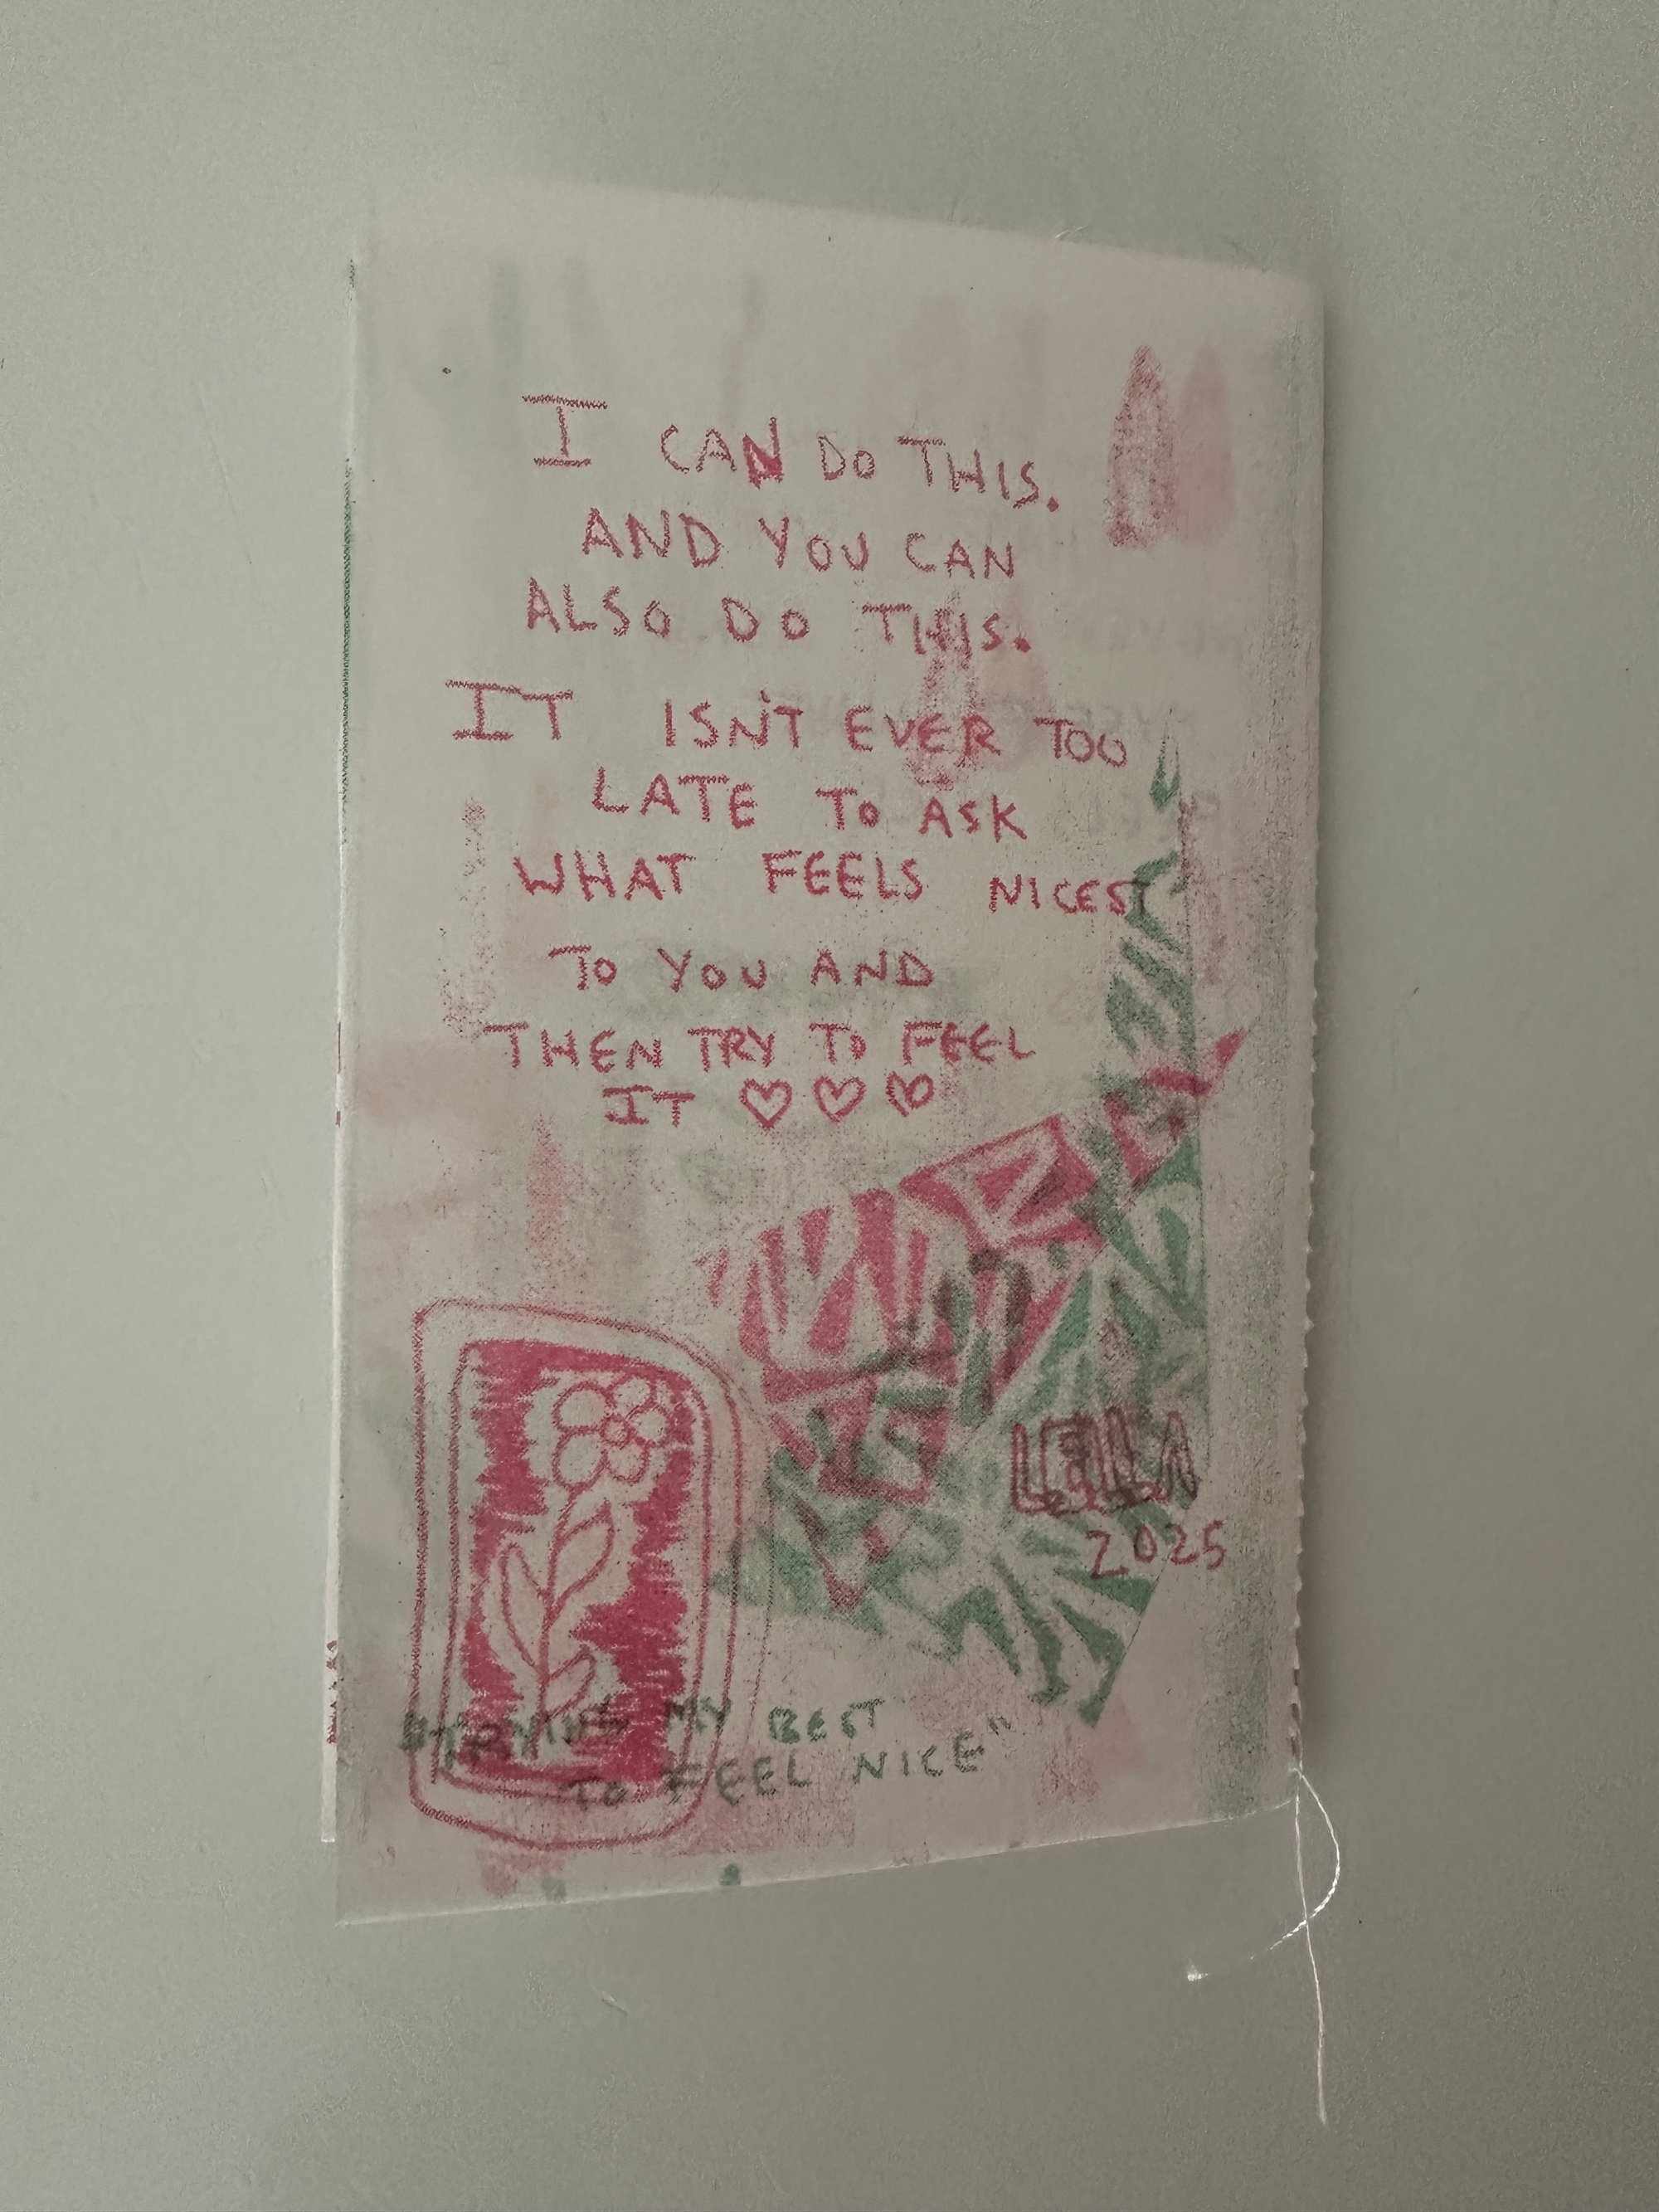 I CAN DO THIS.
AND YOU CAN
ALSO DO THIS.
IT ISN'T EVER TOO
LATE TO ASK
WHAT FEELS NICEST
TO YOU AND
THEN TRY TO FEEL
IT ♡ ♡ ♡
LEILA
2025
"TRYING MY BEST
TO FEEL NICE"